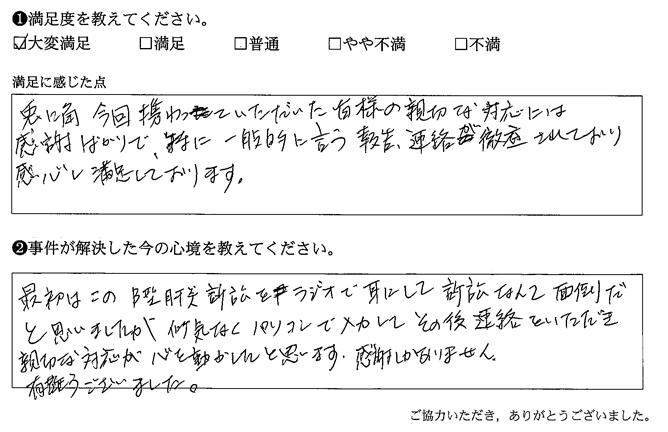 ❶満足度を教えてください。
☑大変満足 □満足 □普通 □やや不満 □不満
満足に感じた点
兎に角 今回携わっていただいた皆様の親切な対応には
感謝ばかりで、特に一般的に言う報告、連絡が徹底されており
感心し満足しております。
❷事件が解決した今の心境を教えてください。
最初はこのB型肝炎訴訟をラジオで耳にして訴訟なんて面倒だ
と思いましたが何気なくパソコンで入力してその後連絡をいただき
親切な対応が心を動かしたと思います。感謝しかありません。
有難うございました。
ご協力いただき、ありがとうございました。